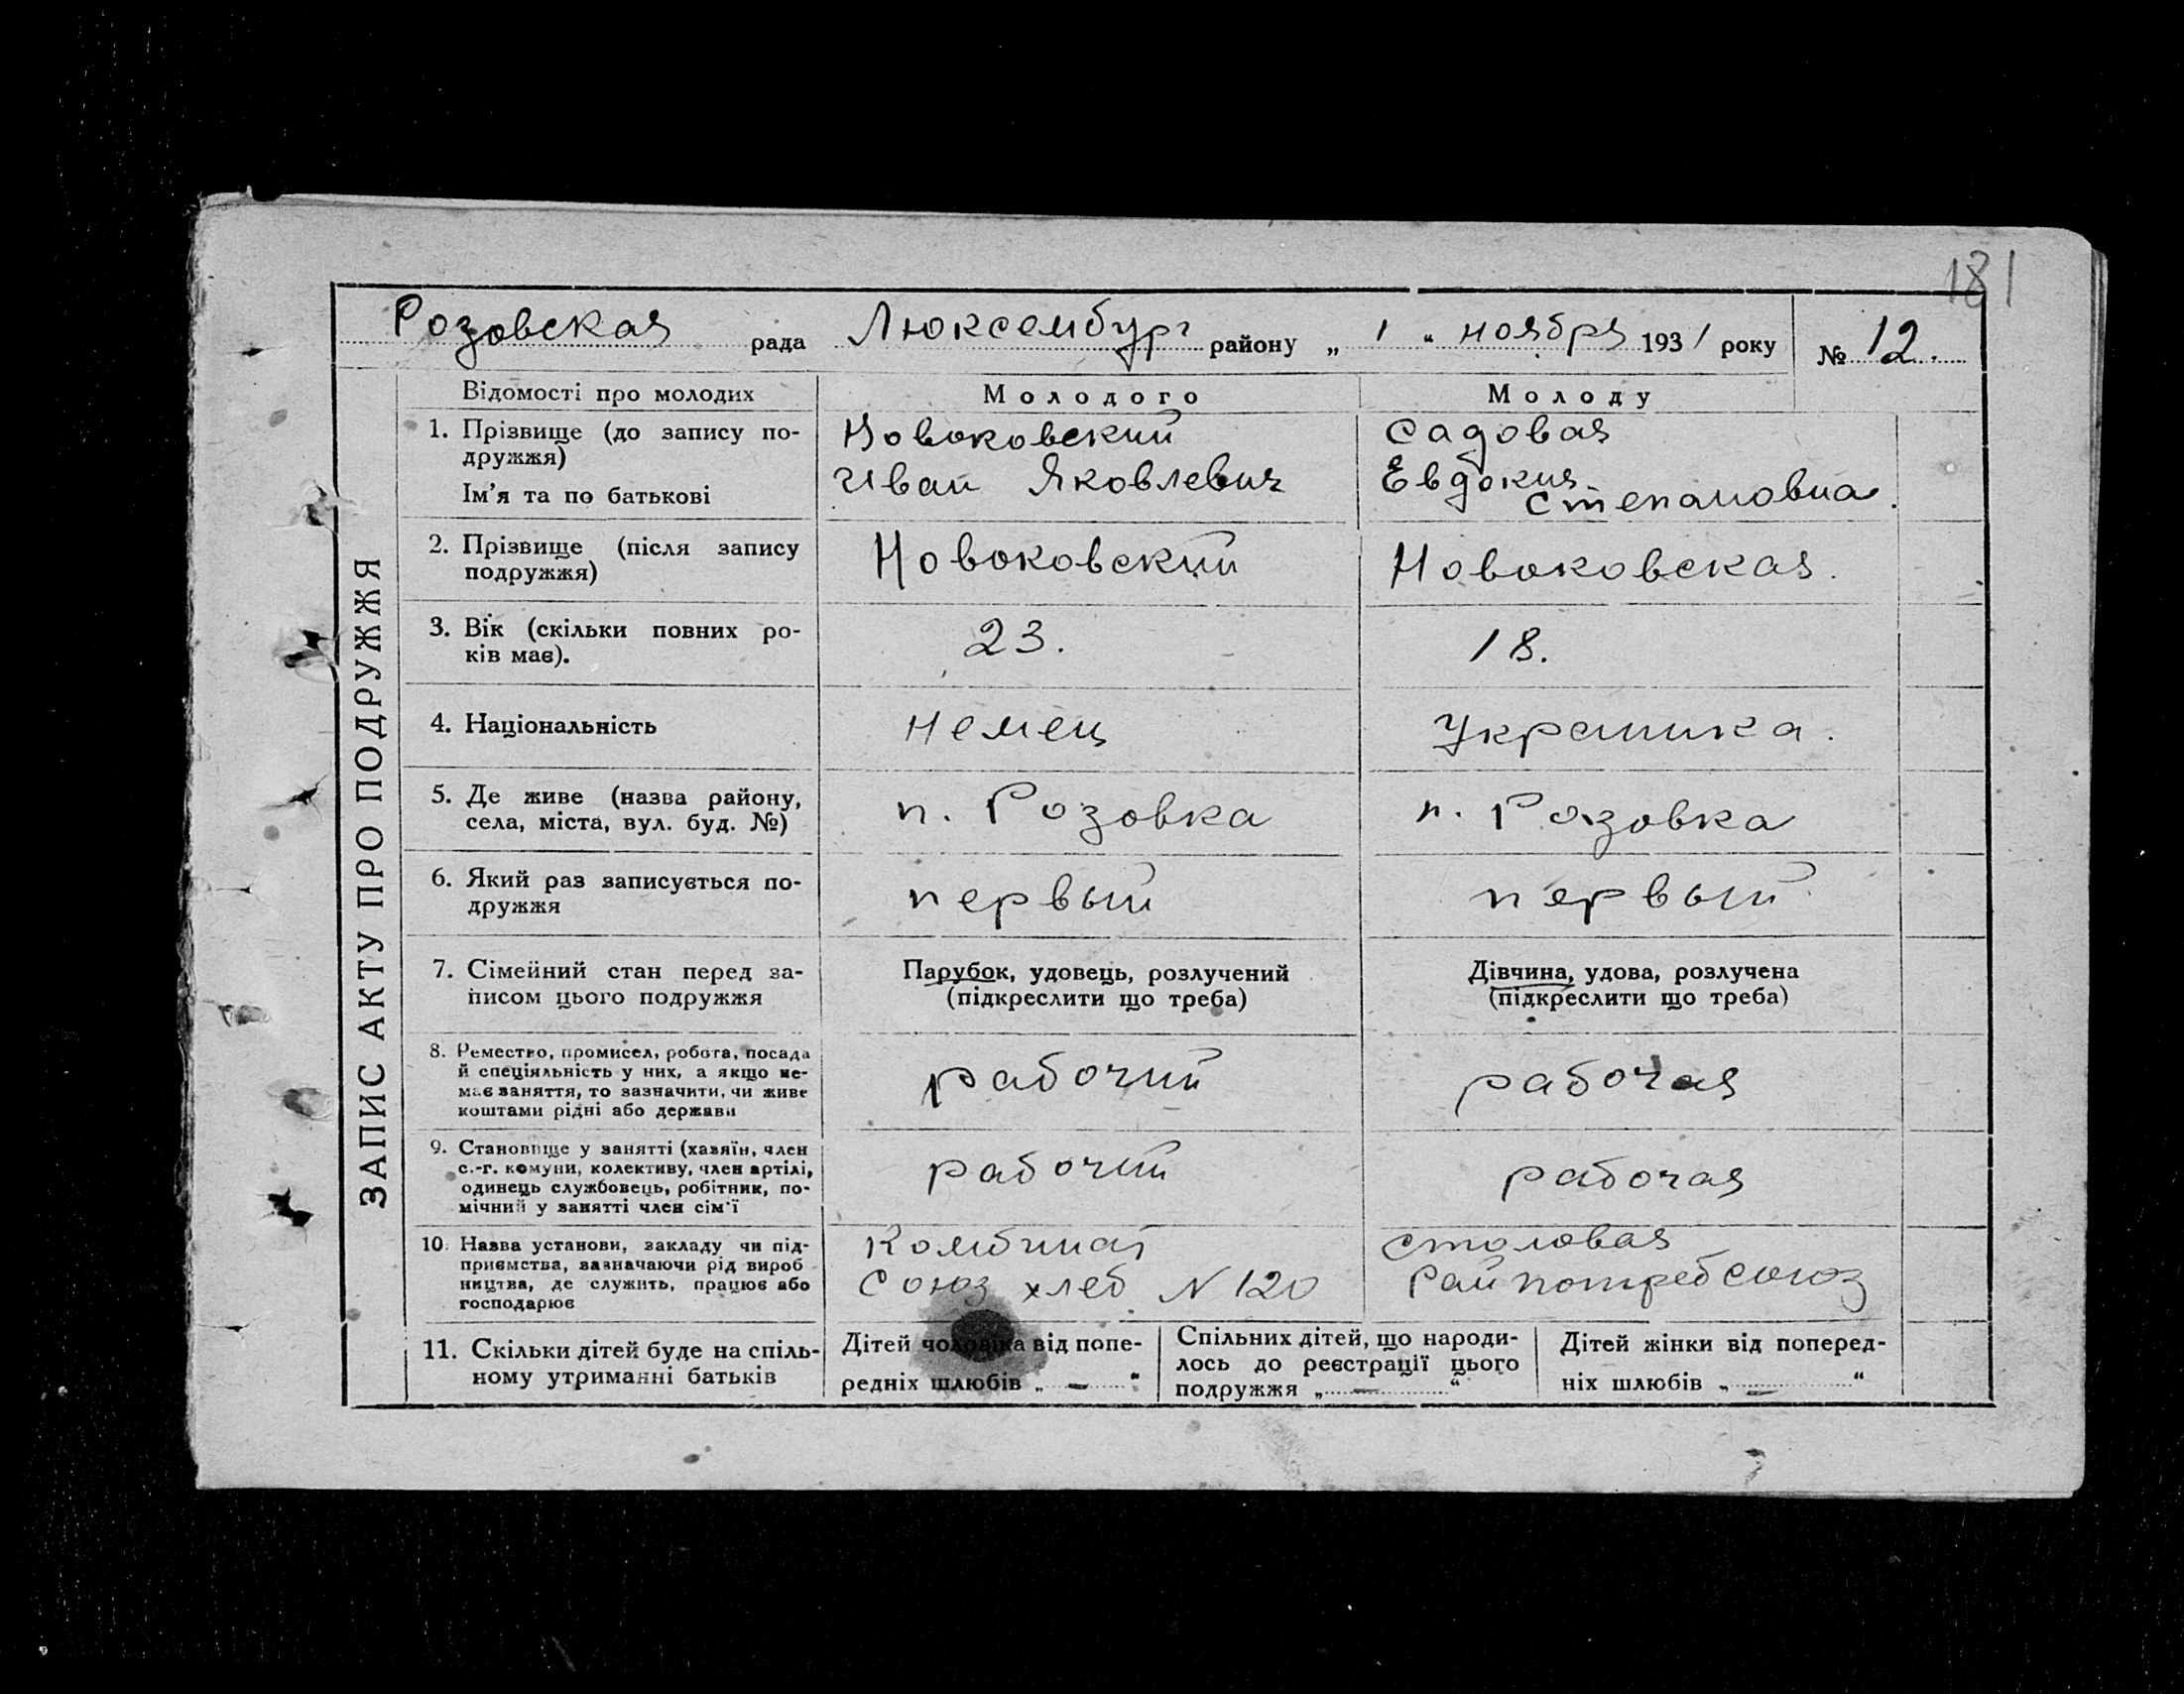 181
Розовская рада Люксембург району „ 1 “ ноября 1931 року № 12.
ЗАПИС АКТУ ПРО ПОДРУЖЖЯ
Відомості про молодих Молодого Молоду
1. Прізвище (до запису по-
дружжя)
Ім'я та по батькові
Новоковский
Иван Яковлевич
Садовая
Евдокия
Степановна.
2. Прізвище (після запису
подружжя)
Новоковский
Новоковская.
3. Вік (скільки повних ро-
ків має).
23.
18.
4. Національність
немец
Украинка.
5. Де живе (назва району,
села, міста, вул. буд. №)
п. Розовка
п. Розовка
6. Який раз записується по-
дружжя
первый
первый
7. Сімейний стан перед за-
писом цього подружжя
Парубок, удовець, розлучений
(підкреслити що треба)
Дівчина, удова, розлучена
(підкреслити що треба)
8. Ремество, промисел, робота, посада
й спеціяльність у них, а якщо не-
має заняття, то зазначити, чи живе
коштами рідні або держави
рабочий
рабочая
9. Становище у занятті (хазяїн, член
с.-г. комуни, колективу, член артілі,
одинець службовець, робітник, по-
мічний у занятті член сім'ї
рабочий
рабочая
10. Назва установи, закладу чи під-
приємства, зазначаючи рід вироб
ництва, де служить, працює або
господарює
Комбинат
Союз хлеб N 120
столовая
Райпотребсоюз
11. Скільки дітей буде на спіль-
ному утриманні батьків
Дітей чоловіка від попе-
редніх шлюбів „ — “
Спільних дітей, що народи-
лось до реєстрації цього
подружжя „ — “
Дітей жінки від поперед-
ніх шлюбів „ — “